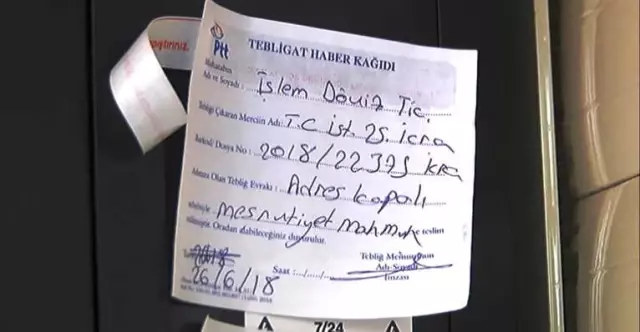 Ptt
TEBLİGAT HABER KAĞIDI
Muhatabın
Adı ve Soyadı : İşlem Döviz Tic.
Tebliği Çıkaran Merciin Adı: T.C ist. 25. icra
Evrak/ Dosya No : 2018/22375 icra
Alınan Tebliğ Evrakı : Adres kapalı
mesrutiyet mahmuk teslim
edilmiştir. Oradan alabileceğiniz duyurulur.
26/6/18
Saat :..../....
Tebliğ Memurunun
Adı-Soyadı
İmzası
7/24